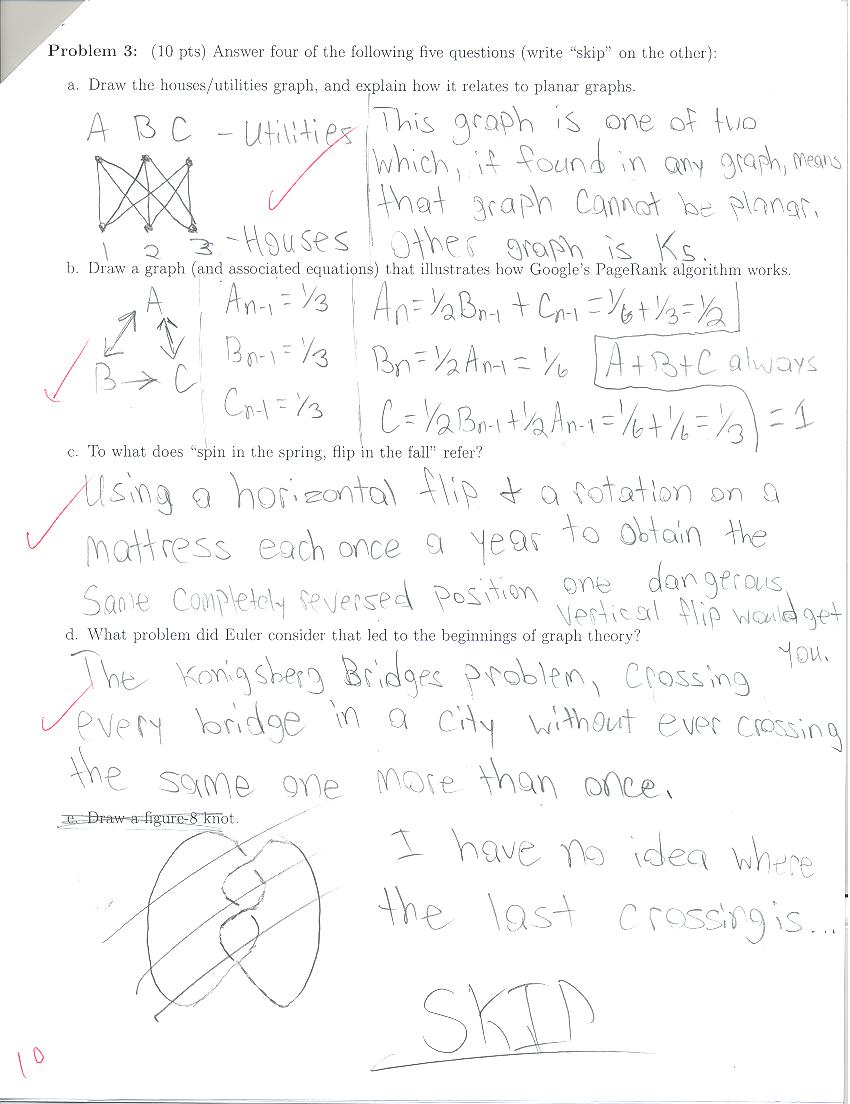 Problem 3: (10 pts) Answer four of the following five questions (write “skip” on the other):
a. Draw the houses/utilities graph, and explain how it relates to planar graphs.
A B C - Utilities
1 2 3 - Houses
This graph is one of two
which, if found in any graph, means
that graph cannot be planar.
Other graph is K5.
b. Draw a graph (and associated equations) that illustrates how Google's PageRank algorithm works.
A
B → C
An-1 = 1/3
Bn-1 = 1/3
Cn-1 = 1/3
An = 1/2Bn-1 + Cn-1 = 1/6 + 1/3 = 1/2
Bn = 1/2An-1 = 1/6
A+B+C always
C = 1/2Bn-1 + 1/2An-1 = 1/6 + 1/6 = 1/3
= 1
c. To what does “spin in the spring, flip in the fall” refer?
Using a horizontal flip + a rotation on a
mattress each once a year to obtain the
same completely reversed position one dangerous
vertical flip would get
you.
d. What problem did Euler consider that led to the beginnings of graph theory?
The Konigsberg Bridges problem, crossing
every bridge in a city without ever crossing
the same one more than once.
e. Draw a figure-8 knot.
I have no idea where
the last crossing is...
SKIP
10